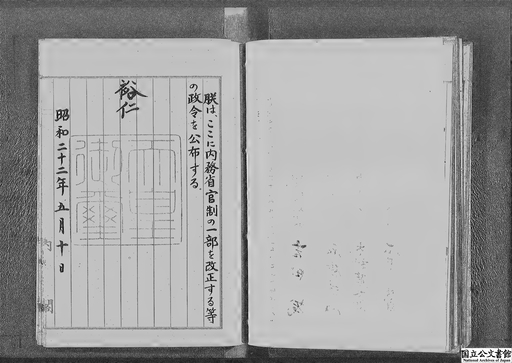 朕は、ここに内務省官制の一部を改正する等
の政令を公布する。
裕仁
天皇
御璽
昭和二十二年五月十日
内閣
国立公文書館
National Archives of Japan